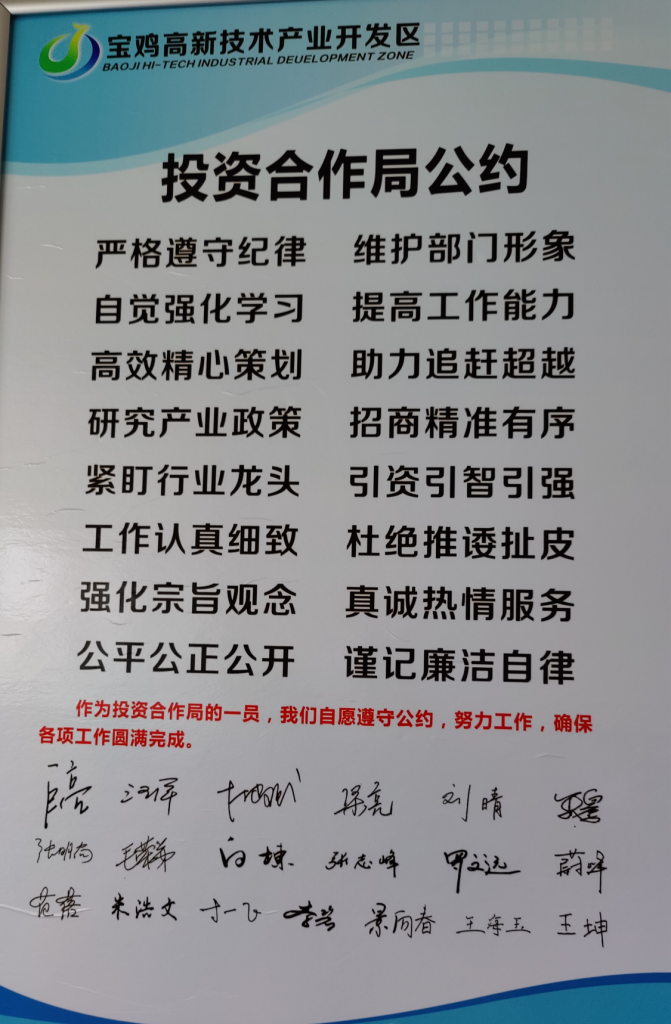 宝鸡高新技术产业开发区
BAOJI HI-TECH INDUSTRIAL DEUELOPMENT ZONE
投资合作局公约
严格遵守纪律 维护部门形象
自觉强化学习 提高工作能力
高效精心策划 助力追赶超越
研究产业政策 招商精准有序
紧盯行业龙头 引资引智引强
工作认真细致 杜绝推诿扯皮
强化宗旨观念 真诚热情服务
公平公正公开 谨记廉洁自律
作为投资合作局的一员，我们自愿遵守公约，努力工作，确保
各项工作圆满完成。
梁亮 刘晴
白栋 张志峰
朱浩文 王坤